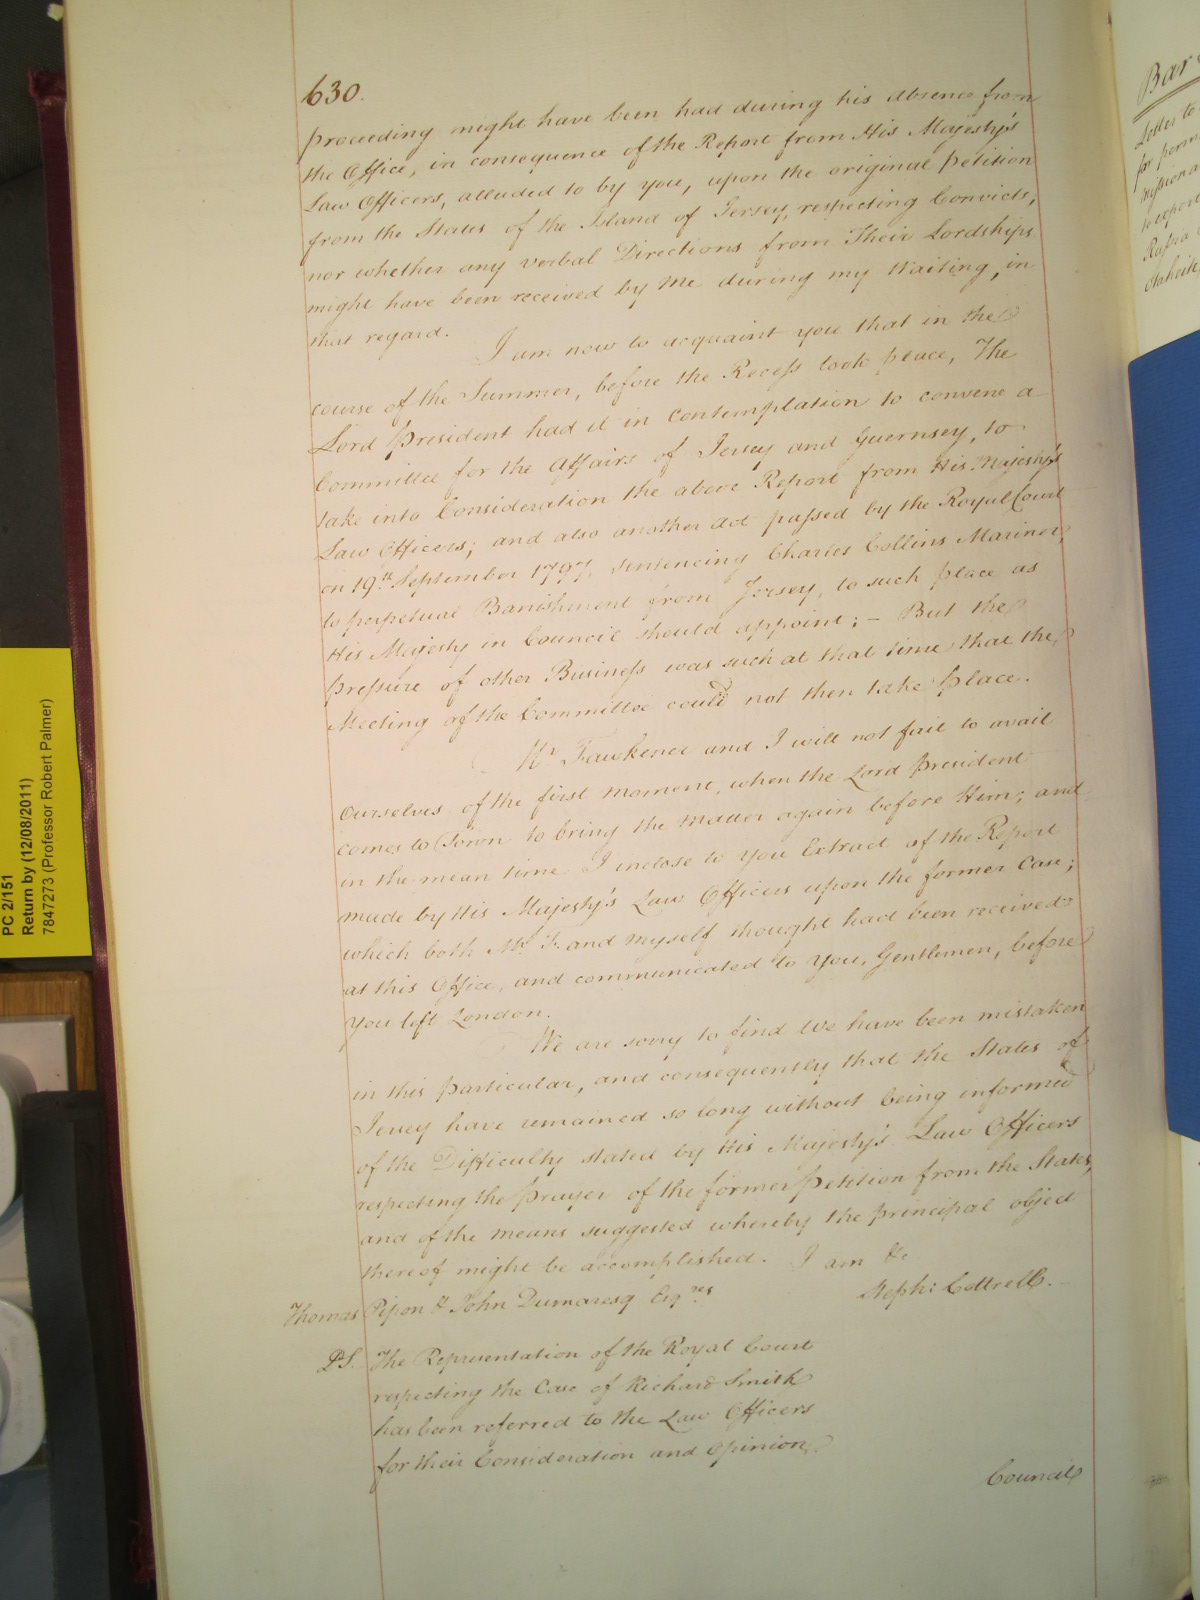 630.
proceeding might have been had during his absence from
the Office, in consequence of the Report from His Majesty's
Law Officers, alluded to by you, upon the original Petition
from the States of the Island of Jersey, respecting Convicts,
nor whether any verbal Directions from Their Lordships
might have been received by me during my Waiting, in
that regard.
I am now to acquaint you that in the
course of the Summer, before the Recess took place, The
Lord President had it in Contemplation to convene a
Committee for the Affairs of Jersey and Guernsey, to
take into Consideration the above Report from His Majesty's
Law Officers; and also another Act passed by the Royal Court
on 19th September 1797, sentencing Charles Collins Mariner,
to perpetual Banishment from Jersey, to such place as
His Majesty in Council should appoint; – But the
pressure of other Business was such at that time that the
Meeting of the Committee could not then take place.
Mr Fawkener and I will not fail to avail
ourselves of the first moment, when the Lord President
comes to Town to bring the matter again before Him; and
in the mean time I inclose to you Extract of the Report
made by His Majesty's Law Officers upon the former Case;
which both Mr F. and myself thought had been received
at this Office, and communicated to you, Gentlemen, before
you left London.
We are sorry to find We have been mistaken
in this particular, and consequently that the States of
Jersey have remained so long without being informed
of the Difficulty stated by His Majesty's Law Officers
respecting the prayer of the former Petition from the States,
and of the means suggested whereby the principal object
thereof might be accomplished. I am &c
Steph: Cottrell.
Thomas Pipon & John Dumaresq Esqres
PS. The Representation of the Royal Court
respecting the Case of Richard Smith
has been referred to the Law Officers
for their Consideration and opinion
Council
Bar
Letter to
for perm
to export
Russia
PC 2/151
Return by (12/08/2011)
7847273 (Professor Robert Palmer)